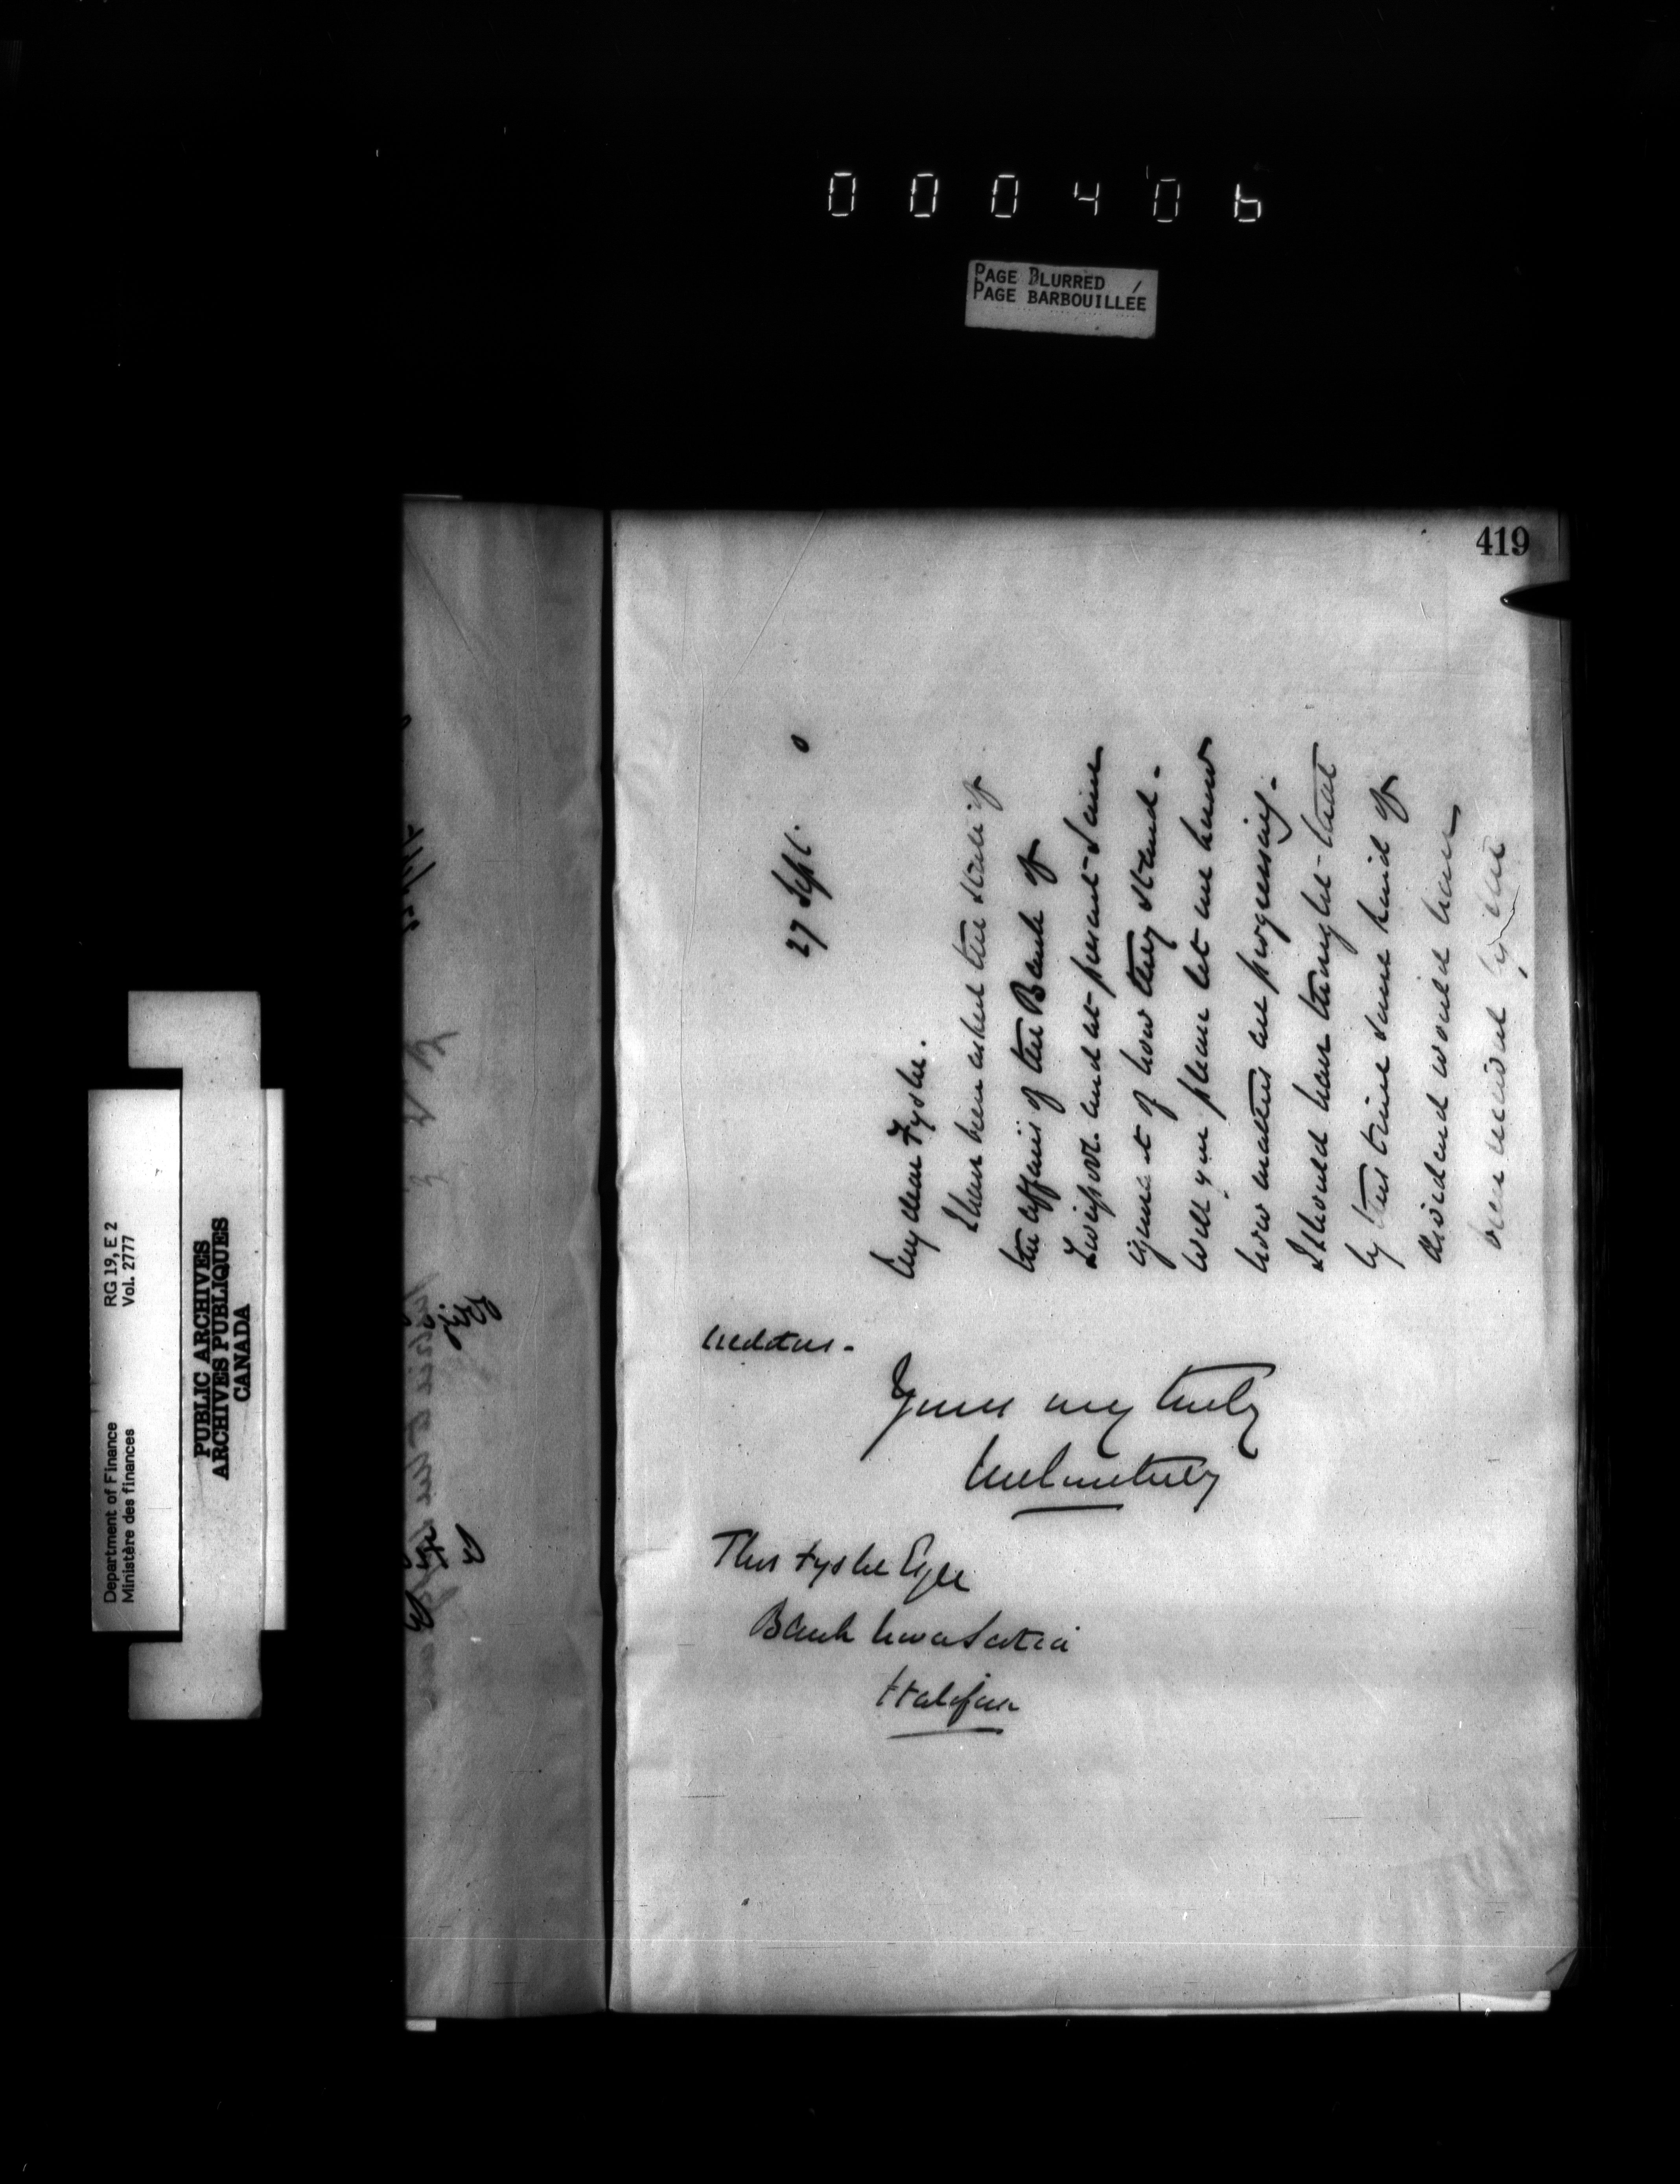 000406
PAGE BLURRED
PAGE BARBOUILLÉE
419
27 Sept. 0
My dear Fyshe.
I have been asked the state of
the affairs of the Bank of
Liverpool. and at present I am
ignorant of how they stand.
Will you please let me know
how matters are progressing.
I should have thought that
by this time some kind of
dividend would have
been received by the
creditors.
Yours very truly
Thos Fyshe Esqre
Bank Nova Scotia
Halifax
Department of Finance RG 19, E 2
Ministère des finances Vol. 2777
PUBLIC ARCHIVES
ARCHIVES PUBLIQUES
CANADA